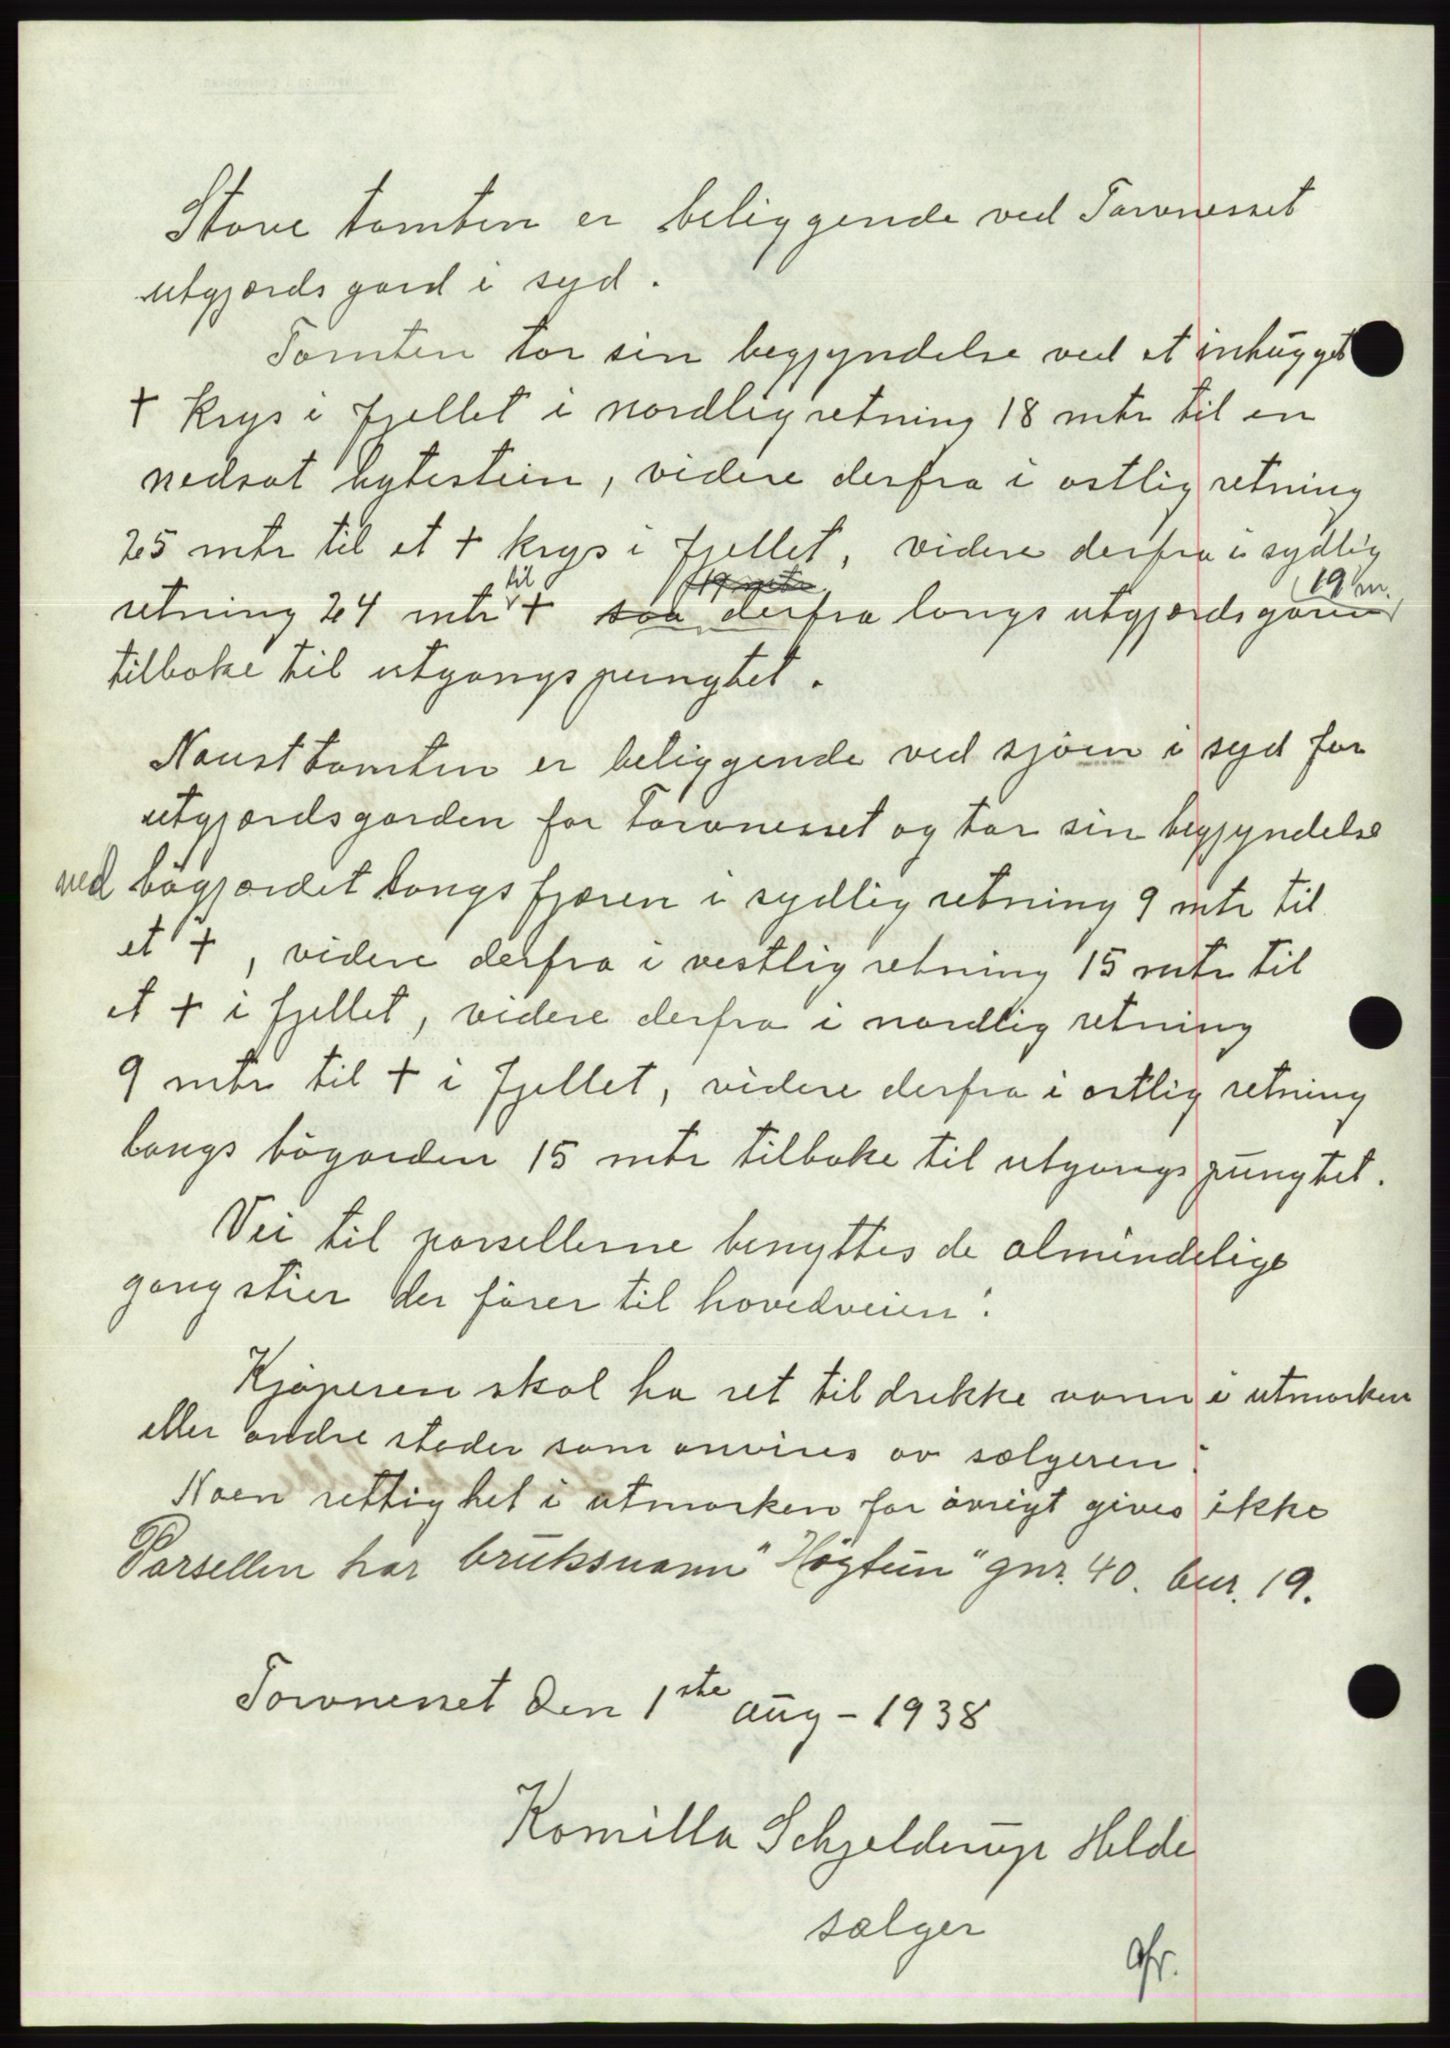 Stove tomten er beliggende ved Tarvnesset
utgjærds gard i syd.
Tomten tar sin begyndelse ved et inhugget
+ krys i fjellet i nordlig retning 18 mtr til en
nedsat bytestein, videre derfra i østlig retning
25 mtr til et + krys i fjellet, videre derfra i sydlig
retning 24 mtr til + saa derfra langs utgjærdsgaren 19 m.
tilbake til utgangspungtet.
Nausttomten er beliggende ved sjøen i syd for
utgjærdsgarden for Tarvnesset og tar sin begyndelse
ved bøgjærdet langs fjæren i sydlig retning 9 mtr til
et +, videre derfra i vestlig retning 15 mtr til
et + i fjellet, videre derfra i nordlig retning
9 mtr til + i fjellet, videre derfra i østlig retning
langs bøgarden 15 mtr tilbake til utgangspungtet.
Vei til parsellerne benyttes de almindelige
gangstier der fører til hovedveien.
Kjøperen skal ha ret til drikke vann i utmarken
eller andre steder som anvises av sælgeren.
Noen rettighet i utmarken for øvrigt gives ikke
Parsellen har bruksnavn "Høgtun" gnr. 40. bnr. 19.
Tarvnesset den 1ste aug – 1938
Kamilla Schjelderup Helde
sælger